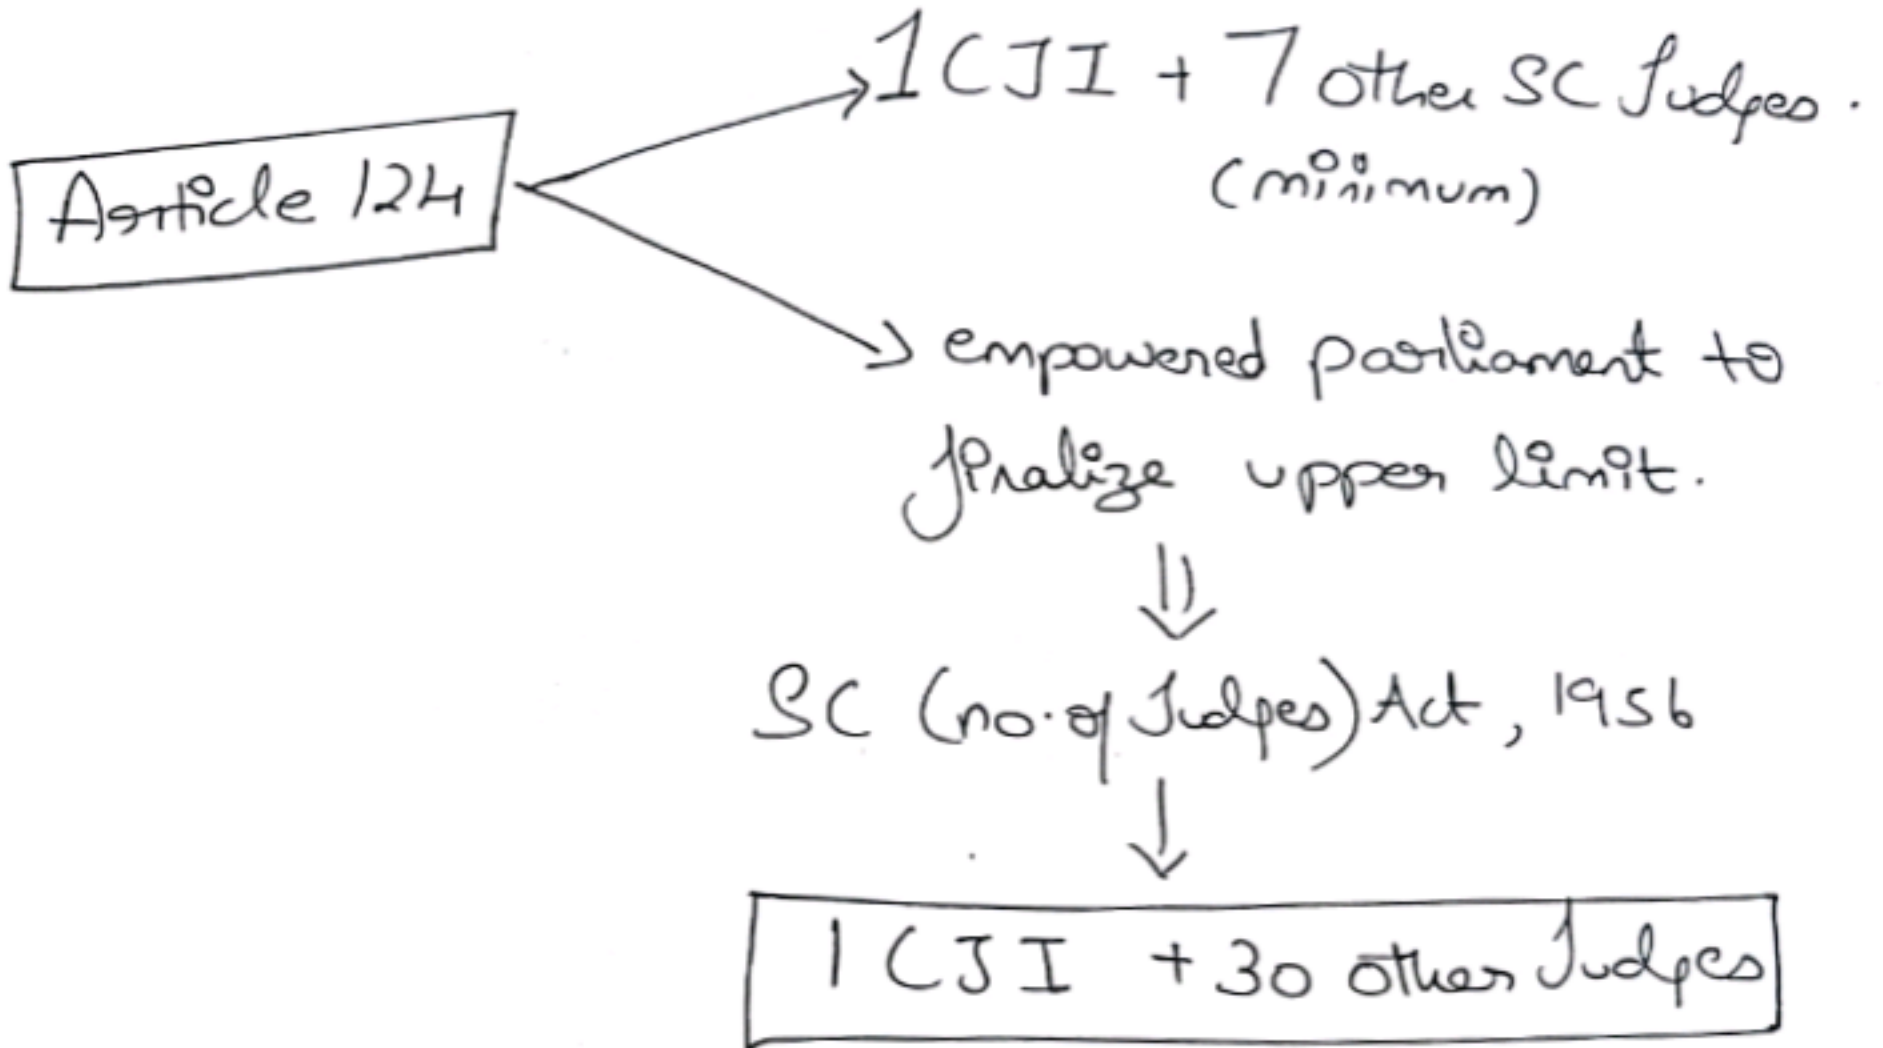 Article 124
1 CJI + 7 other SC Judges.
(minimum)
empowered parliament to
finalize upper limit.
SC (no. of Judges) Act, 1956
1 CJI + 30 other Judges